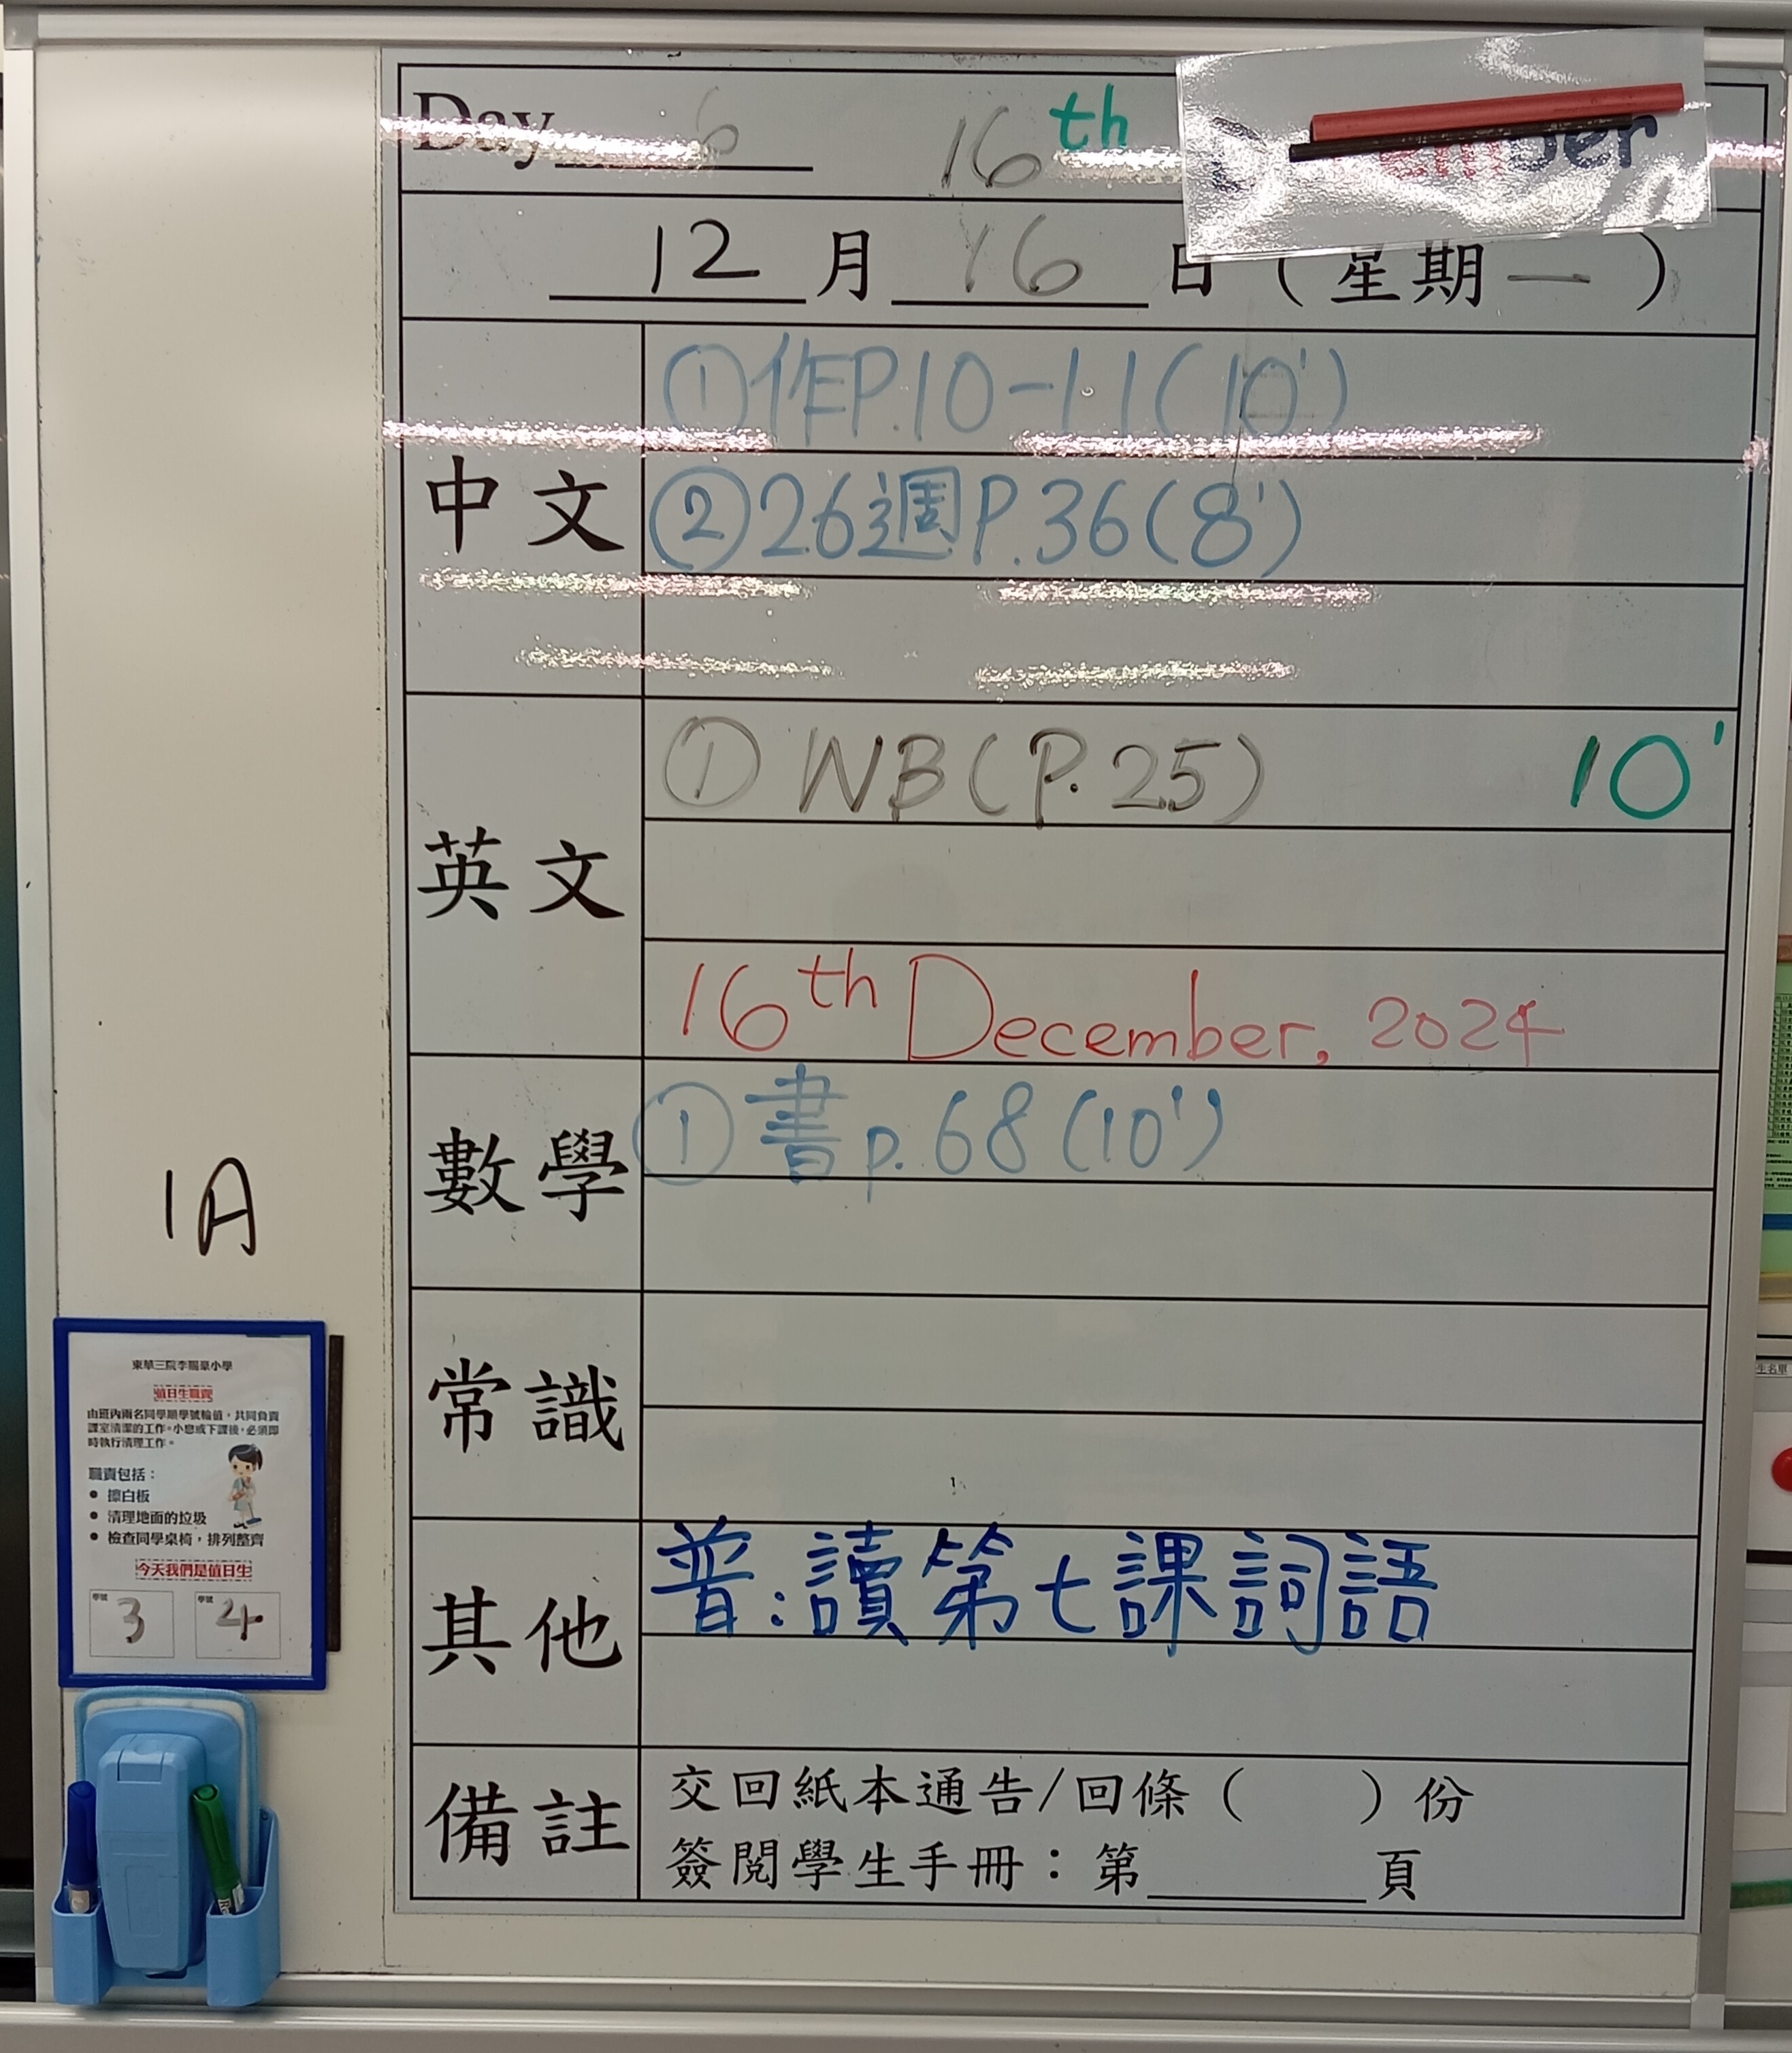 Day 6 16th December
12月16日(星期一)
中文
①作P.10-11(10')
②26週P.36(8')
英文
①WB(P.25) 10'
16th December, 2024
數學
①書p.68(10')
常識
其他
普:讀第七課詞語
備註
交回紙本通告/回條( )份
簽閱學生手冊:第______頁
1A
東華三院李賜豪小學
值日生職責
由班內兩名同學順學號輪值,共同負責
課室清潔的工作。小息或下課後,必須即
時執行清理工作。
職責包括:
● 擦白板
● 清理地面的垃圾
● 檢查同學桌椅,排列整齊
今天我們是值日生
學號 3
學號 4
生名單